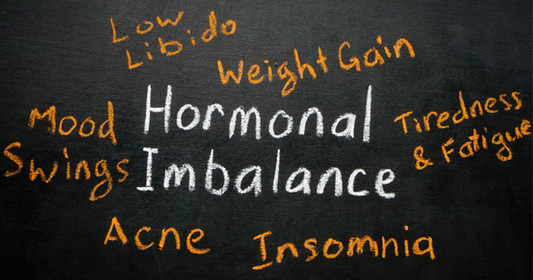 Low
Libido
Weight Gain
Mood
Swings
Hormonal
Imbalance
Tiredness
& Fatigue
Acne
Insomnia